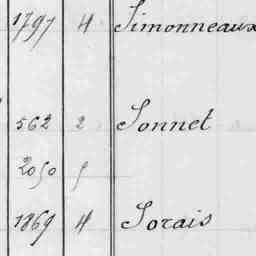 1797 4 Simonneaux
562 2 Sonnet
2050 5
1869 4 Sorais